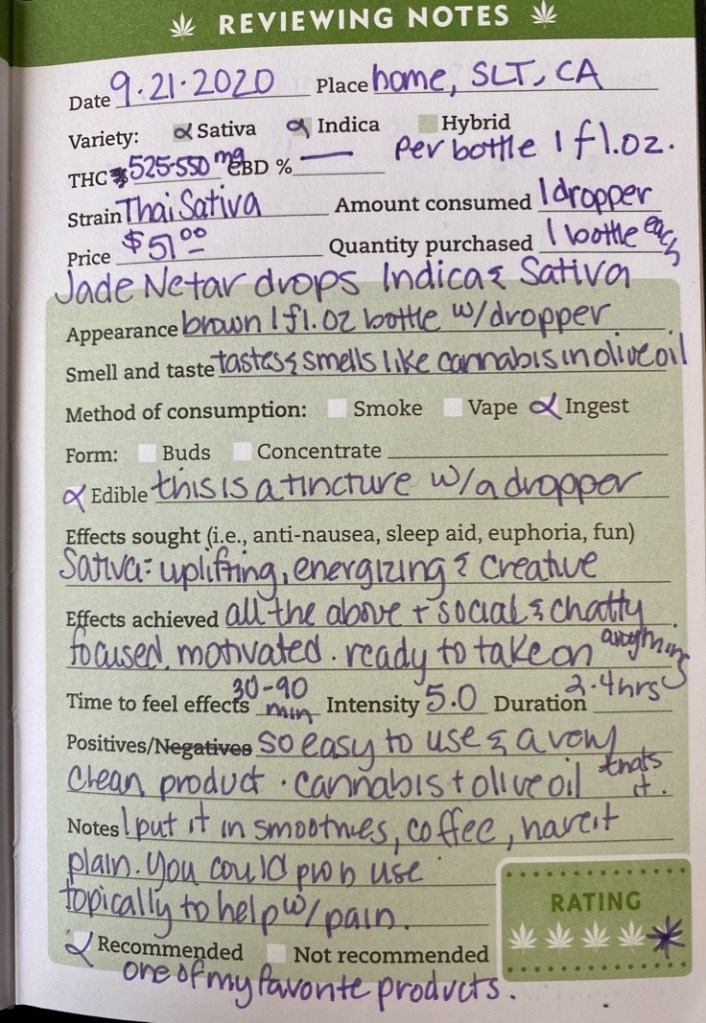 REVIEWING NOTES
Date 9.21.2020 Place home, SLT, CA
Variety: Sativa Indica Hybrid
THC % 525-550 mg CBD % — per bottle 1 fl.oz.
Strain Thai Sativa Amount consumed 1 dropper
Price $51.00 Quantity purchased 1 bottle each
Jade Netar drops Indica & Sativa
Appearance brown 1 fl.oz bottle w/dropper
Smell and taste tastes & smells like cannabis in olive oil
Method of consumption: Smoke Vape Ingest
Form: Buds Concentrate
Edible this is a tincture w/a dropper
Effects sought (i.e., anti-nausea, sleep aid, euphoria, fun)
Sativa: uplifting, energizing & creative
Effects achieved all the above + social & chatty
focused, motivated. ready to take on anything
Time to feel effects 30-90 min Intensity 5.0 Duration 2-4hrs
Positives/Negatives so easy to use & a very
clean product. cannabis + olive oil thats it.
Notes I put it in smoothies, coffee, have it
plain. You could prob use
topically to help w/ pain.
RATING
Recommended Not recommended
one of my favorite products.